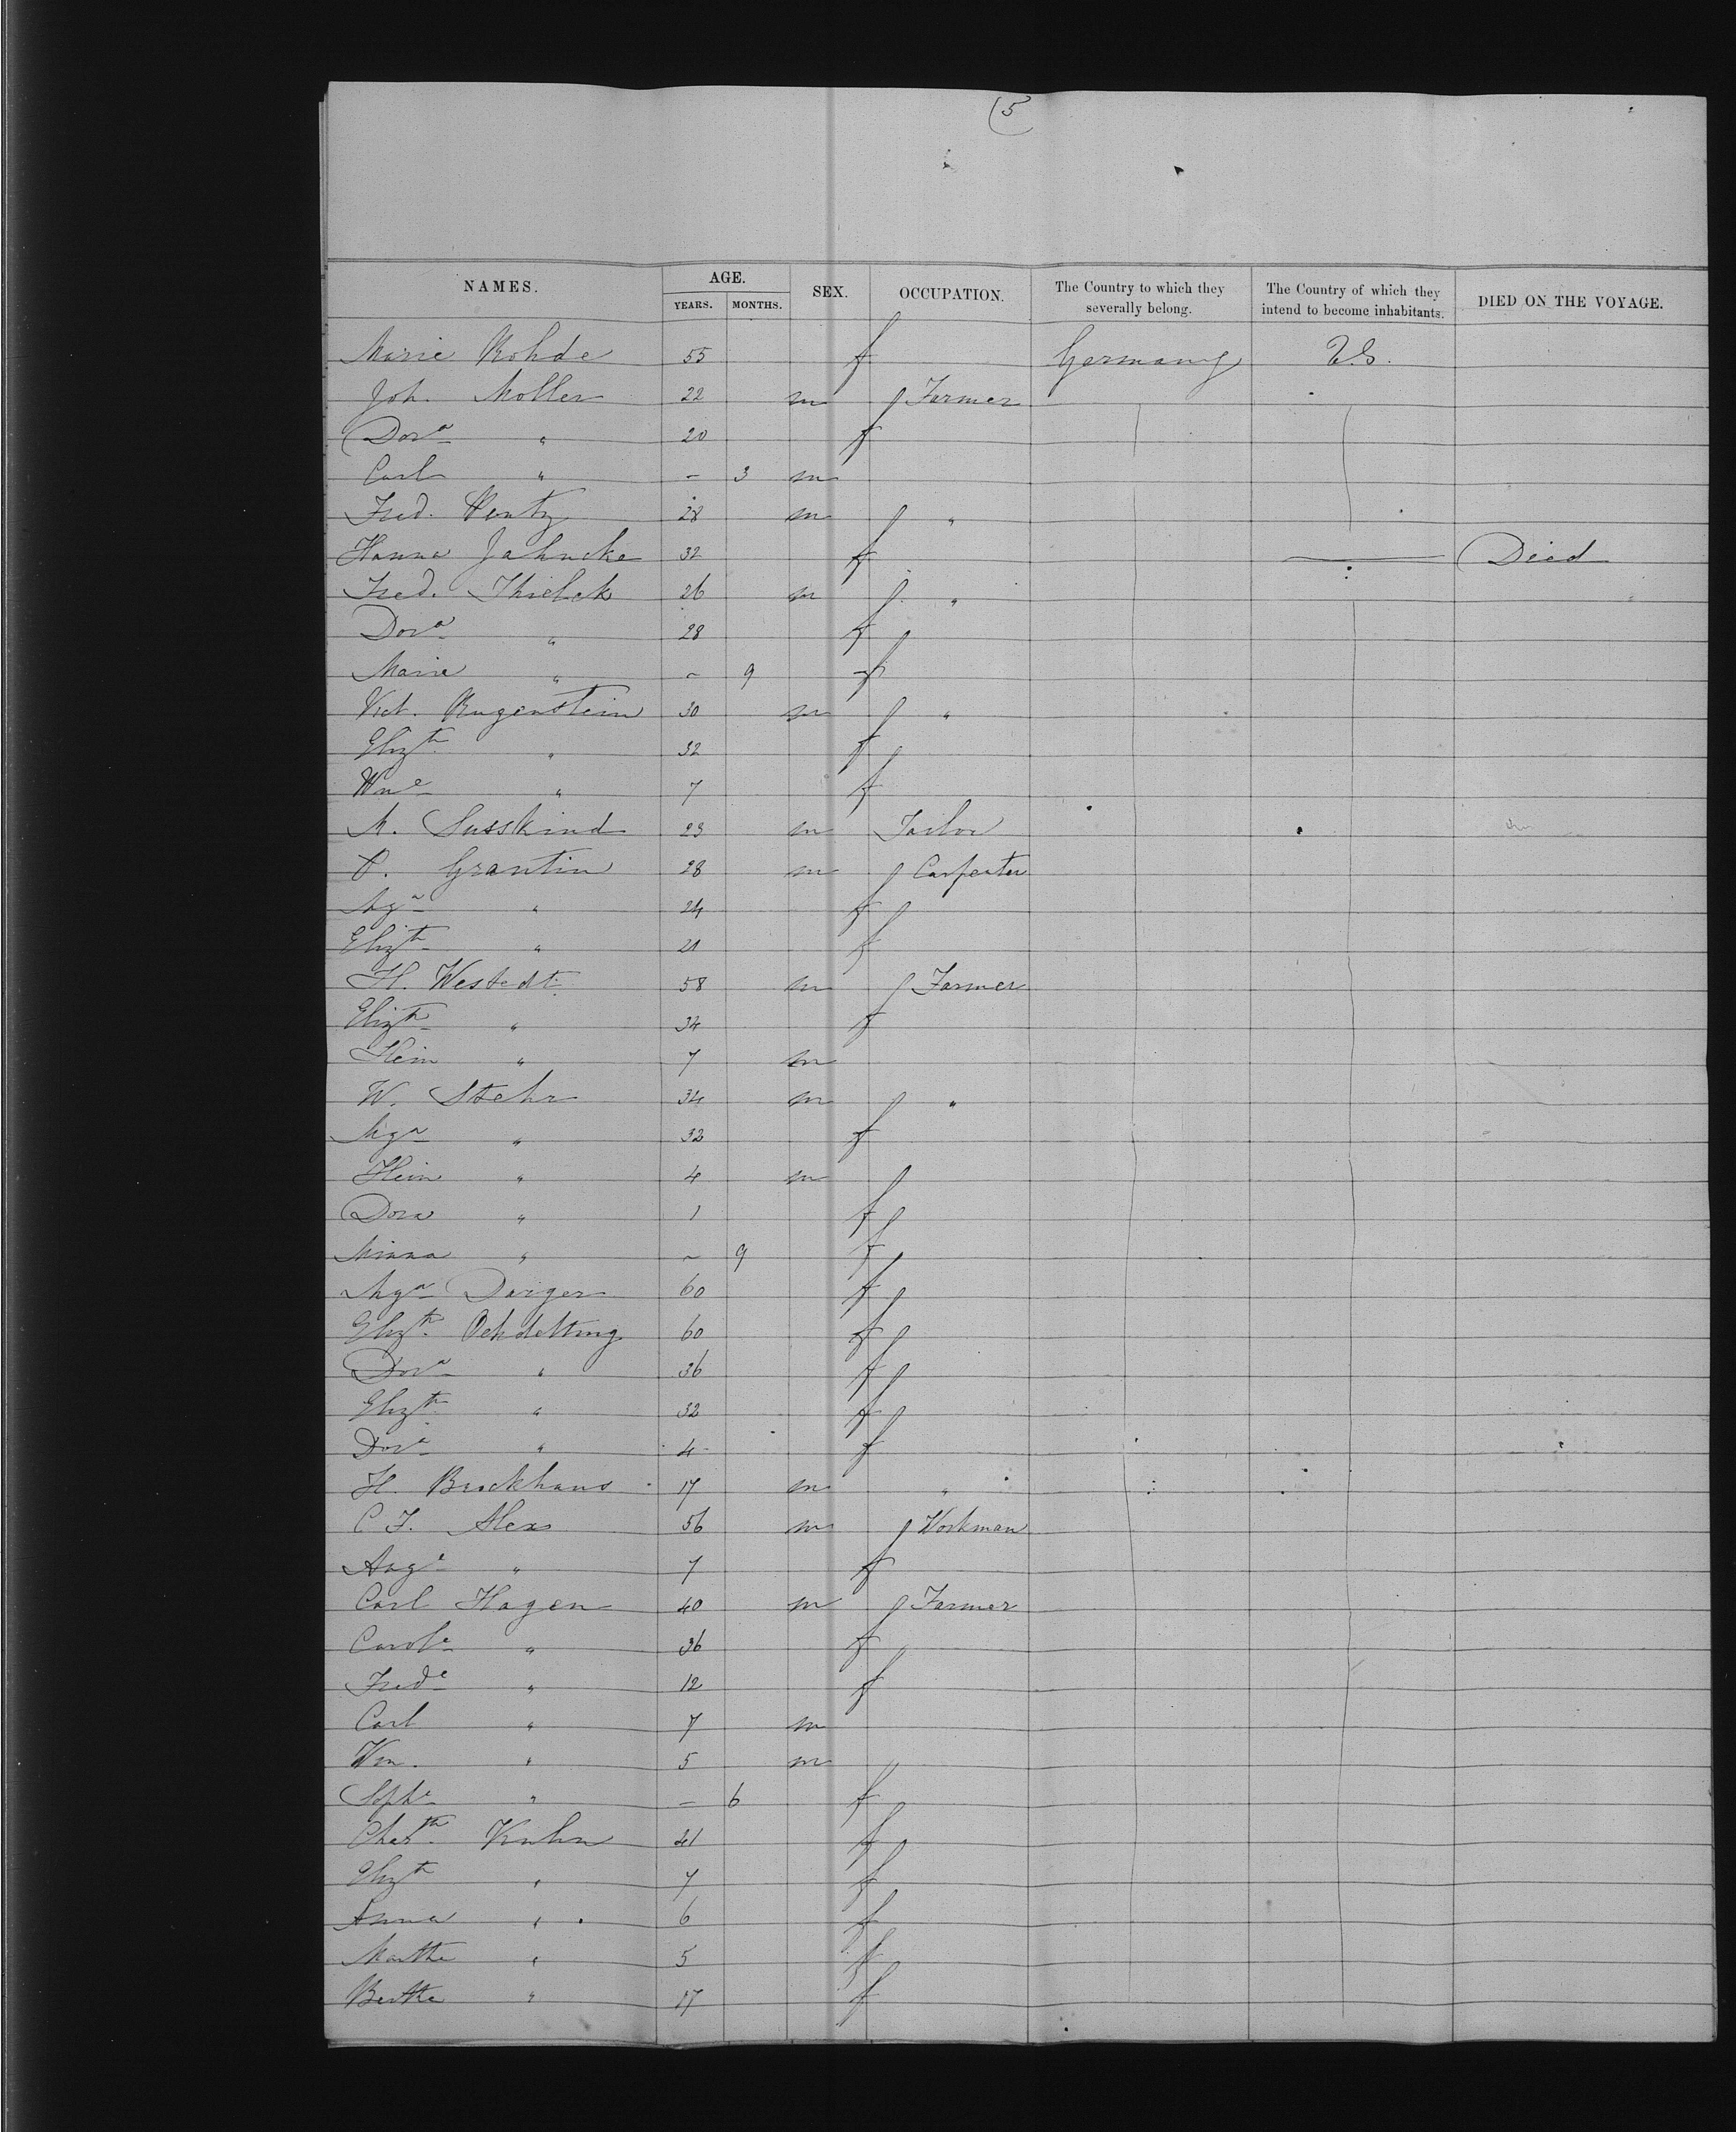 (5
NAMES. AGE. SEX. OCCUPATION. The Country to which they severally belong. The Country of which they intend to become inhabitants. DIED ON THE VOYAGE.
YEARS. MONTHS.
Marie Rohde 55 f Germany U.S.
Joh. Moller 22 m Farmer
Dora " 20 f
Carl " - 3 m
Fred. Wentz 28 m "
Hanna Jahncke 32 f Died
Fred. Thielck 26 m "
Dora " 28 f
Marie " - 9 f
Vict. Rugenstein 30 m "
Elizth " 32 f
Wne " 7 f
M. Susskind 23 m Tailor
P. Grantin 28 m Carpenter
Mga " 24 f
Elizth " 21 f
H. Westedt 58 m Farmer
Elizth " 34 f
Hein " 7 m
W. Stehr 34 m "
Mga " 32 f
Hein " 4 m
Dora " 1 f
Minna " - 9 f
Mga Dwiger 60 f
Elizth 60 f
Dora " 36 f
Elizth " 32 f
Dora " 4 f
H. Brockhaus 17 m "
C F. Alex 56 m Workman
Auge " 7 f
Carl Hagen 40 m Farmer
Carole " 36 f
Frede " 12 f
Carl " 7 m
Wm. " 5 m
Sophe " - 6 f
Kuhn 41 f
Elizth " 7 f
Anna " 6 f
Marthe " 5 f
Berthe " 17 f